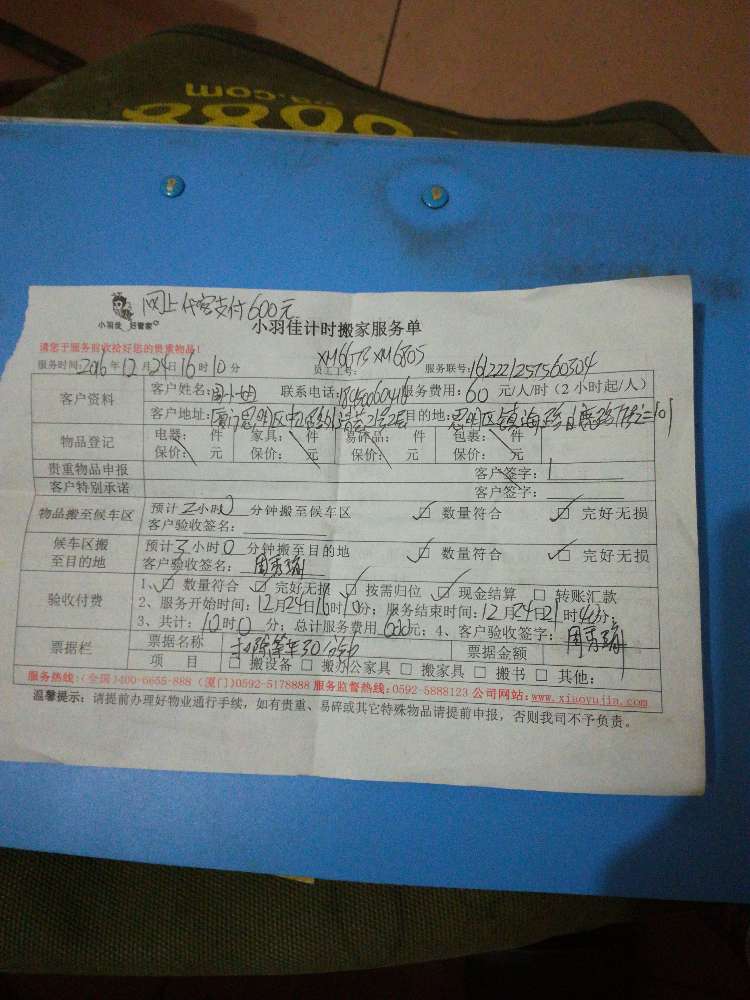 .com
8888
网上代客支付600元
小羽佳 好管家
小羽佳计时搬家服务单
请您于服务前收拾好您的贵重物品!
服务时间:2016年12月24日16时10分 员工工号: XM6573 XM6805 服务联号:
客户资料 客户姓名:周小姐 联系电话: 服务费用:60元/人/时(2小时起/人)
客户地址:厦门思明区 2号2层 目的地:思明区镇海路 101
物品登记 电器: 件 家具: 件 易碎品: 件 包装: 件
保价: 元 保价: 元 保价: 元 保价: 元
贵重物品申报 客户签字:
客户特别承诺 客户签字:
物品搬至候车区 预计2小时0分钟搬至候车区 ☑ 数量符合 ☑ 完好无损
客户验收签名:
候车区搬至目的地 预计3小时0分钟搬至目的地 ☑ 数量符合 ☑ 完好无损
客户验收签名:
验收付费 1、☑ 数量符合 ☑ 完好无损 ☑ 按需归位 ☑ 现金结算 □ 转账汇款
2、服务开始时间:12月24日16时10分;服务结束时间:12月24日21时40分;
3、共计:10时0分;总计服务费用600元;4、客户验收签字:
票据栏 票据名称 扣除等车30分钟 票据金额
项 目 □ 搬设备 □ 搬办公家具 □ 搬家具 □ 搬书 □ 其他:
服务热线:(全国)400-6655-888 (厦门)0592-5178888 服务监督热线:0592-5888123 公司网站:www.xiaoyujia.com
温馨提示:请提前办理好物业通行手续,如有贵重、易碎或其它特殊物品请提前申报,否则我司不予负责。